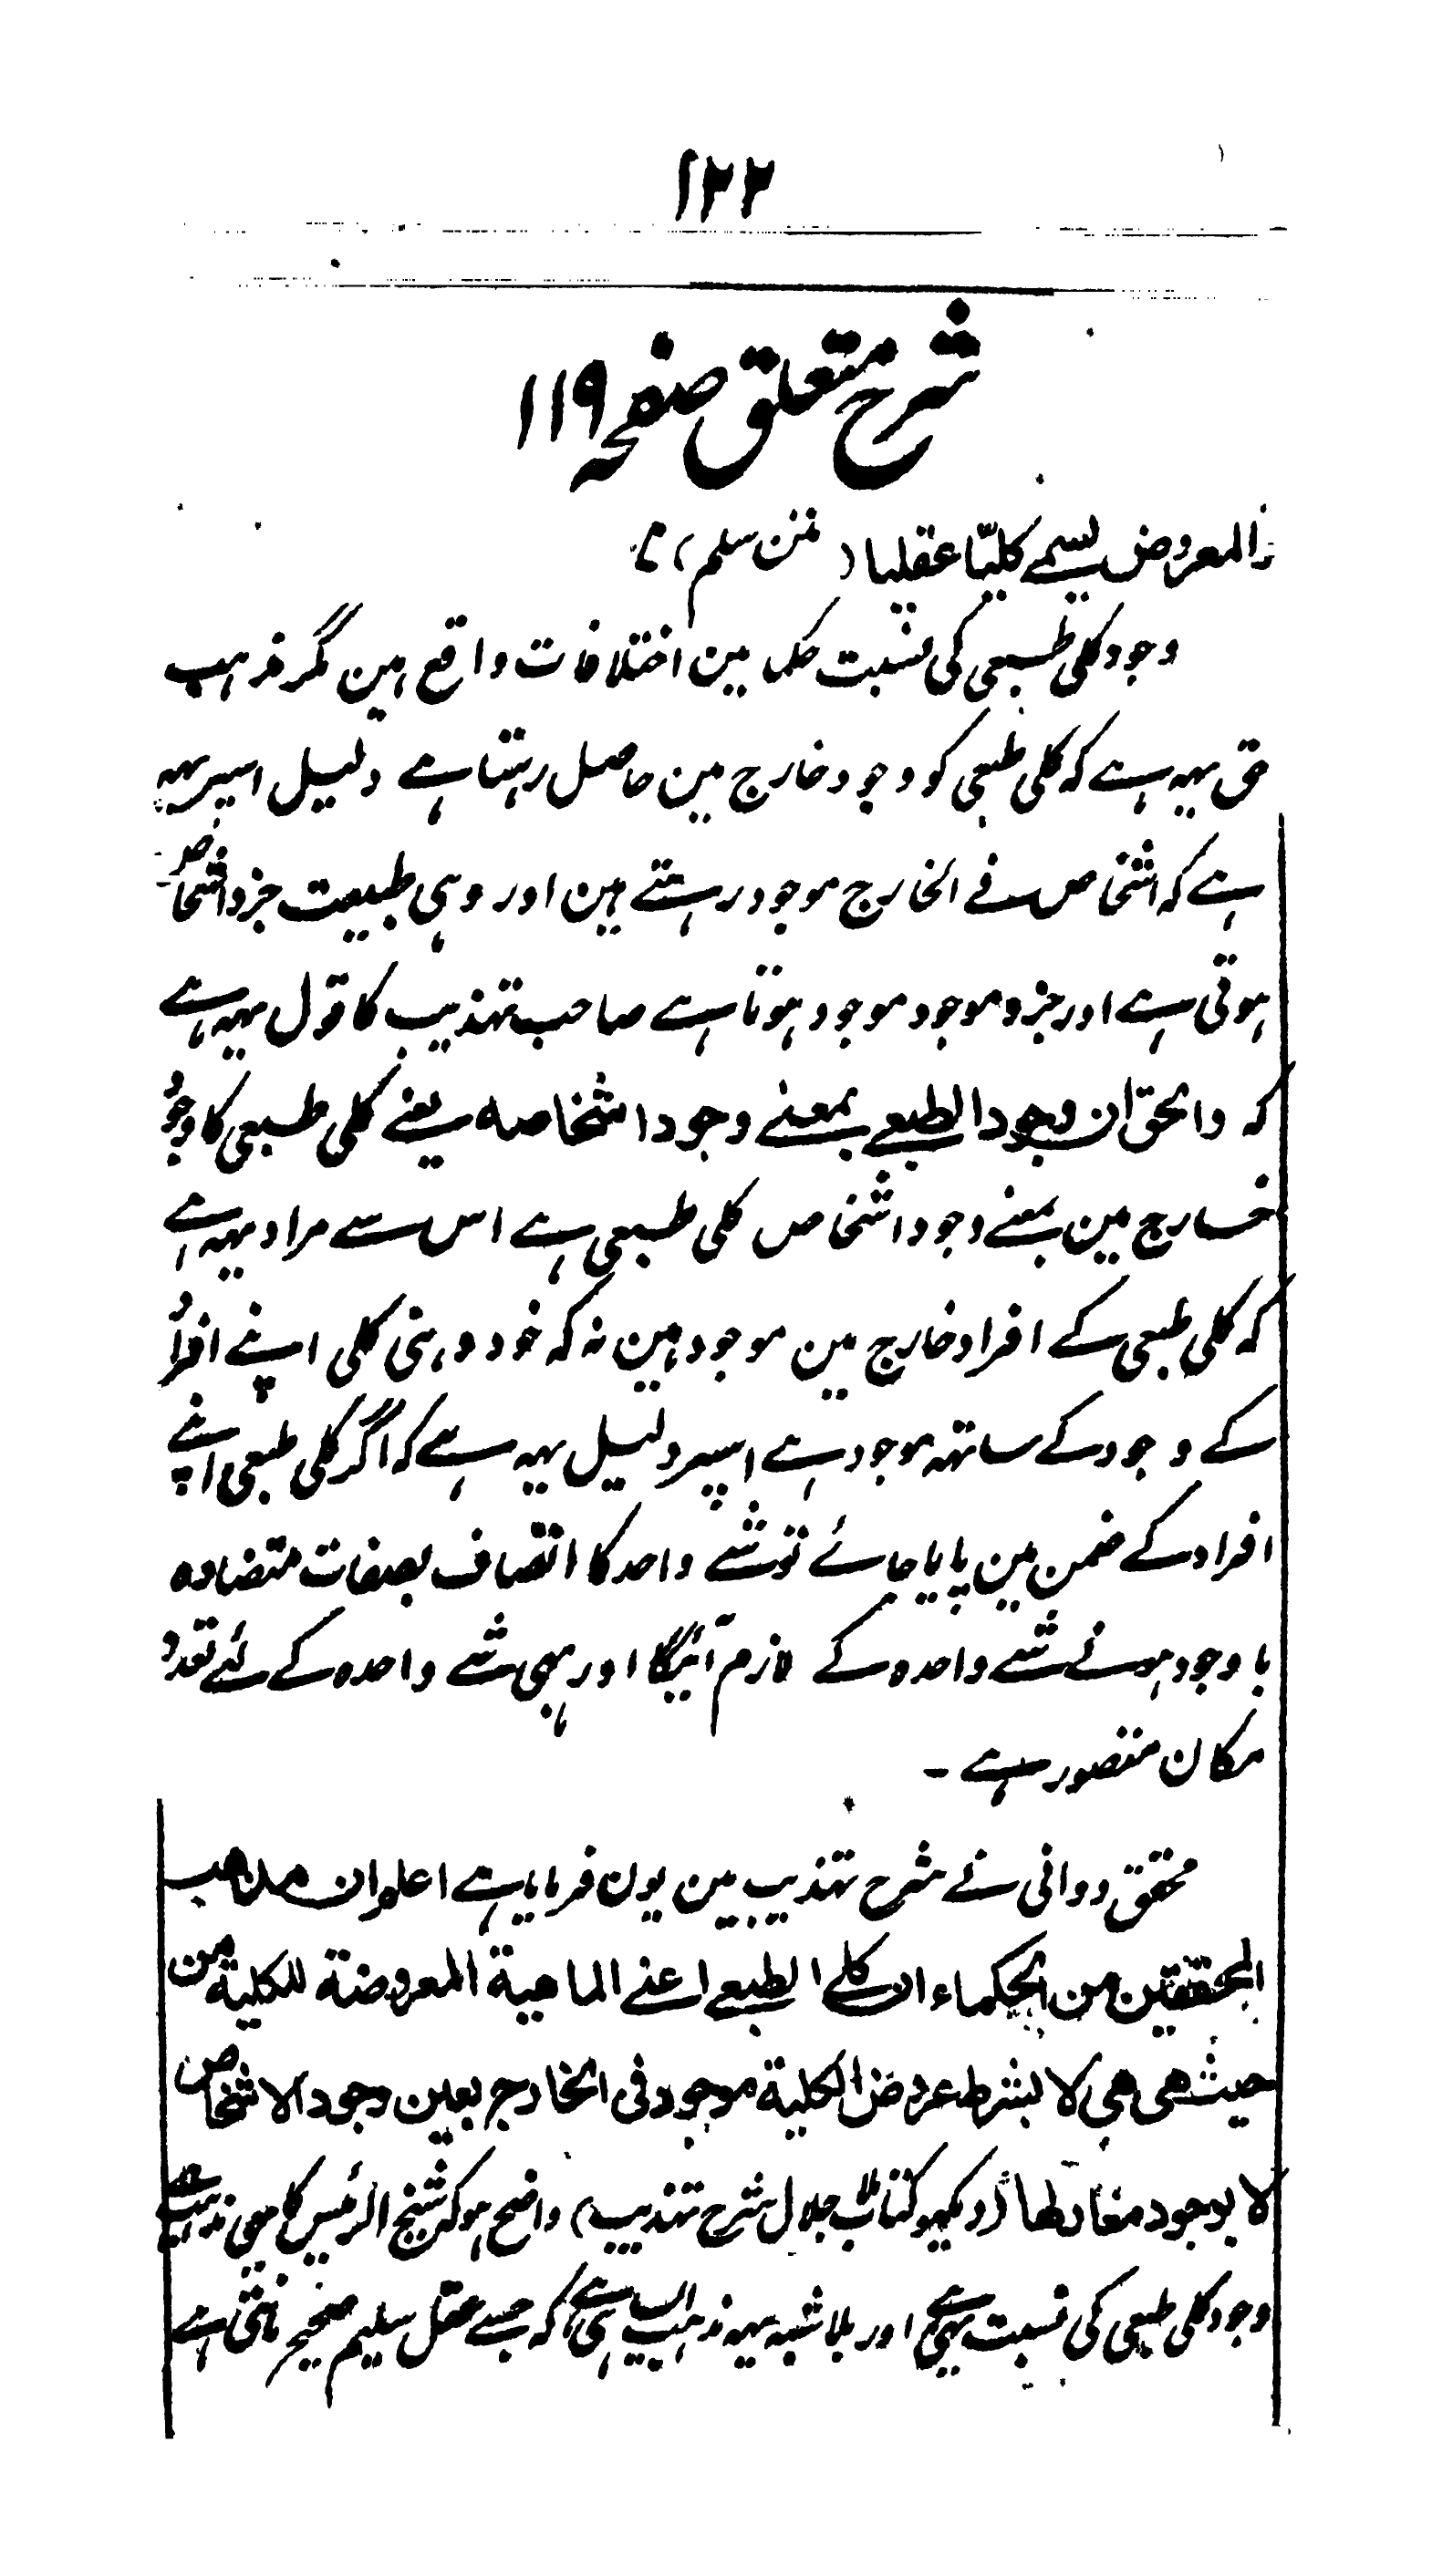 ١٢٢
شرح متعلق صفحہ ١١٩
والمعروض یسمے کلیّا عقلیا (متن سلم) م؂
وجود کلی طبیعی کی نسبت حکما مین اختلافات واقع ہین مگر مذہب
حق یہہ ہے کہ کلی طبعی کو وجود خارج مین حاصل رہتا ہے دلیل اسپر یہہ
ہے کہ اشخاص فے الخارج موجود رہتے ہین اور وہی طبیعت جزو اشخاص
ہوتی ہے اور جزو موجود موجود ہوتا ہے صاحب تہذیب کا قول یہہ ہے
کہ والحق ان وجود الطبعے بمعنے وجود اشخاصہ یعنے کلی طبیعی کا وجود
خارج مین بمعنے وجود اشخاص کلی طبیعی ہے اس سے مراد یہہ ہے
کہ کلی طبعی کے افراد خارج مین موجود ہین نہ کہ خود وہی کلی اپنے افراد
کے وجود کے ساتھہ موجود ہے اسپر دلیل یہہ ہے کہ اگر کلی طبعی اپنے
افراد کے ضمن مین پایا جائے تو شے واحد کا اتصاف بصفات متضادہ
باوجود ہونے شے واحدہ کے لازم آئیگا اور یہی شے واحدہ کے لئے تعدد
مکان متصور ہے ۔
محقق دوانی نے شرح تہذیب مین یون فرمایا ہے اعلم ان مذھب
المحققین من الحکماء ان کلے الطبعے اعنے الماھیة المعروضة للکلیة من
حیث ھی ھی لا بشرط عروض الکلیة موجود فی الخارج بعین وجود الاشخاص
لا بوجود مغائر لھا (دیکھو کتاب ملا جلال شرح تہذیب) واضح ہو کہ شیخ الرئیس کا بھی مذہب
وجود کلی طبعی کی نسبت یہی ہے اور بلا شبہہ یہہ مذہب ایسا ہی ہے کہ جسے عقل سلیم صحیح مانتی ہے